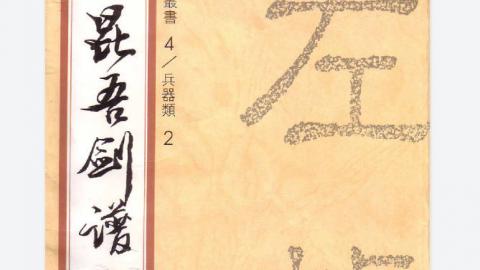 昆吾劍譜
叢書 4／兵器類 2
左